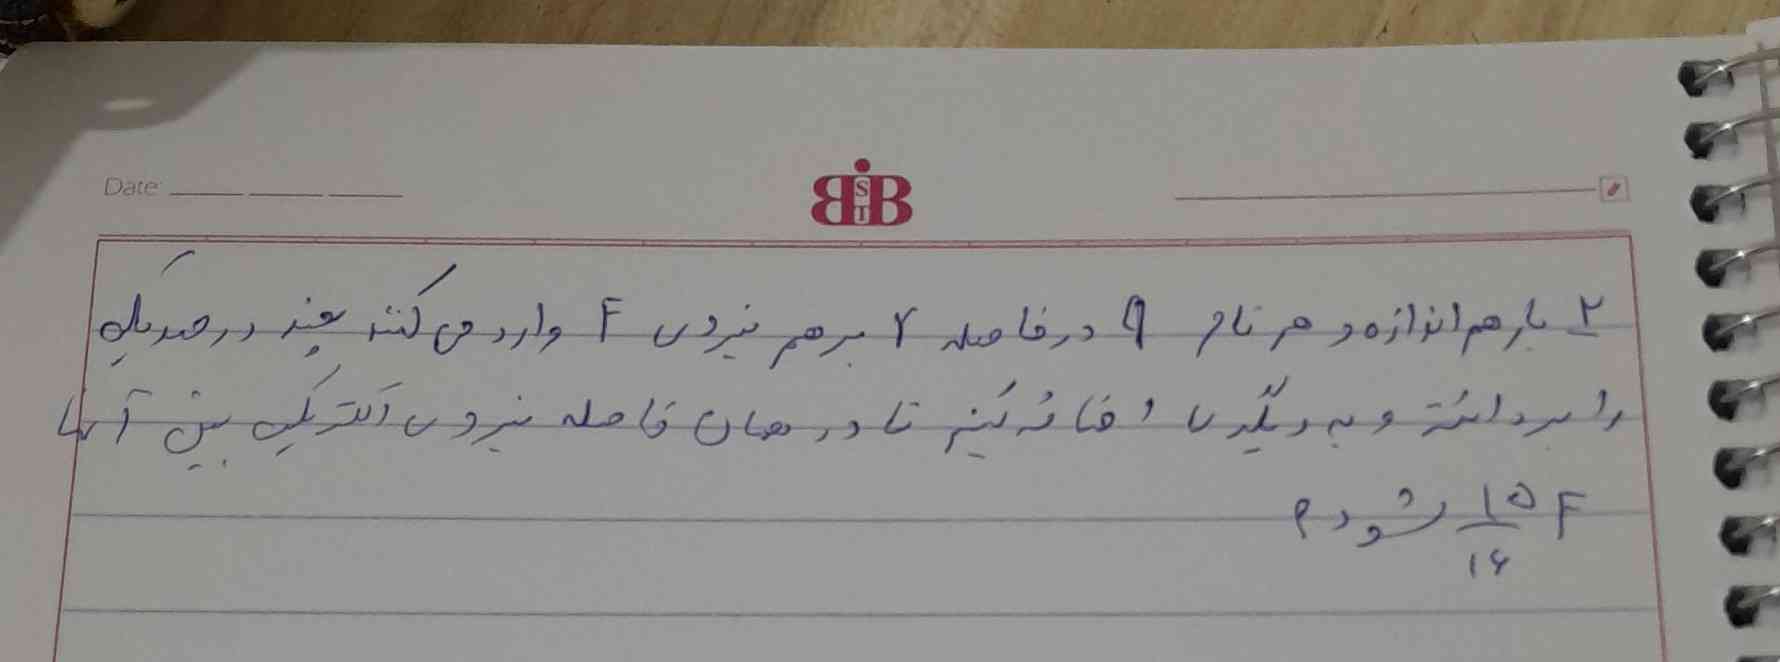 Date:
BiB
ST
۲ بار هم اندازه و هم نام q در فاصله r بر هم نیروی F وارد می کنند چند درصد یکی
را برداشته و به دیگری اضافه کنیم تا در همان فاصله نیروی الکتریکی بین آنها
۱۵/۱۶ F شود؟